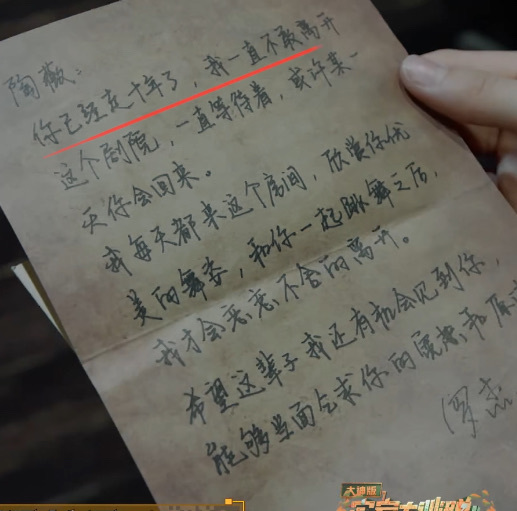 陶薇：
你已经走十年了，我一直不敢离开
这个剧院，一直等待着，或许某一
天你会回来。
我每天都来这个房间，欣赏你优
美的舞姿，和你一起跳舞之后，
我才会恋恋不舍的离开。
希望这辈子我还有机会见到你，
能够当面乞求你的原
罗杰
大神版